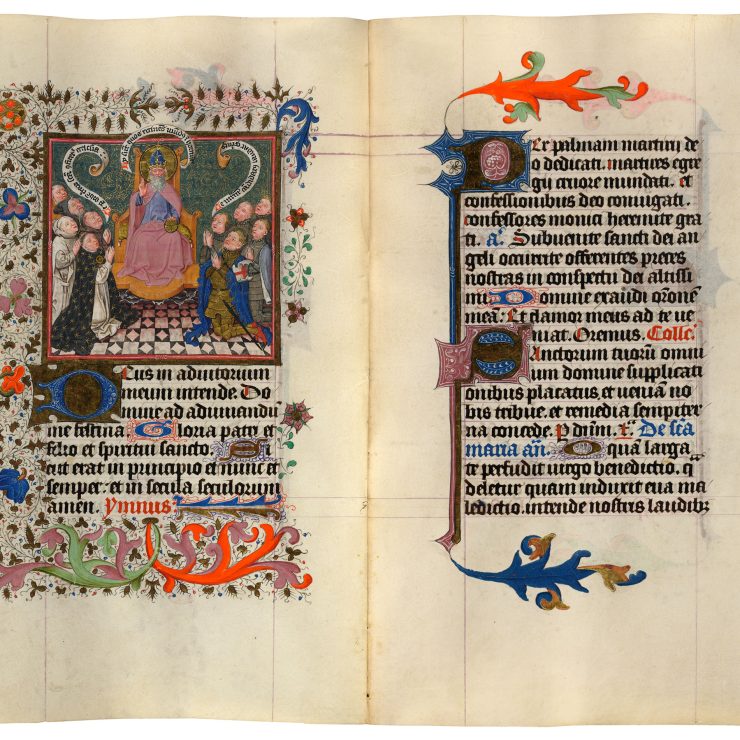 Deus in adiutorium
meum intende. Do
mine ad adiuuandū
me festina. Gloria patri et
filio et spiritui sancto. Si
cut erat in principio et nunc et
semper: et in secula seculorum
amen. ymnus
Per palmam martirij de
o dedicati. martires egre
gij cruore mundati. et
confessionibus deo coniugati.
confessores monici heremite gra
ti. a. Subuenite sancti dei an
geli occurite offerentes preces
nostras in conspectu dei altissi
mi Domine exaudi oronem
meā: Et clamor meus ad te ue
niat. Oremus. Colle.
Sanctorum tuorū omni
um domine supplicati
onibus placatus, et ueniam no
bis tribue, et remedia sempiter
na concede. P dnm. De scā
maria an. O quam larga
te perfudit uirgo benedictio. q
deletur quam induxit eua ma
ledictio. intende nostris laudibz